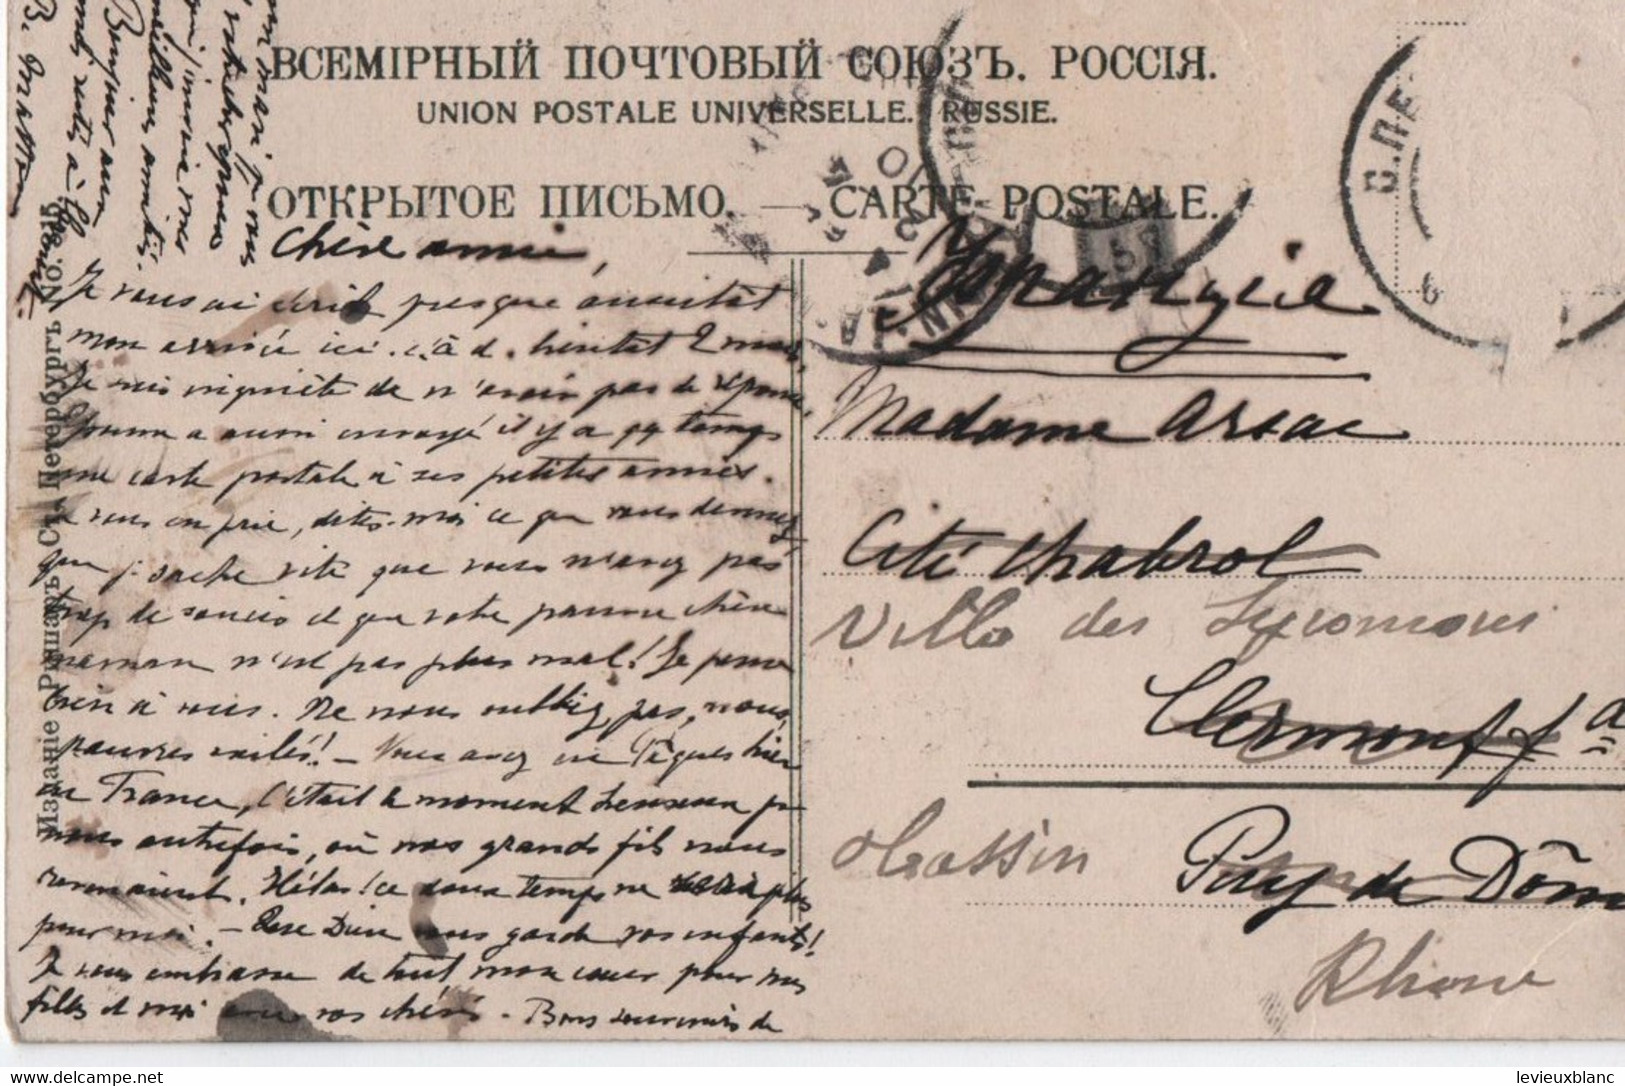 ВСЕМІРНЫЙ ПОЧТОВЫЙ СОЮЗЪ. РОССІЯ.
UNION POSTALE UNIVERSELLE. RUSSIE.
ОТКРЫТОЕ ПИСЬМО. — CARTE POSTALE.
С.ПЕ
6
Chère amie,
Je vous ai écrit presque aussitôt
mon arrivée ici. c.à d. bientôt 2 mois,
Je suis inquiète de n'avoir pas de réponse,
a aussi envoyé il y a qq temps
une carte postale à ses petites amies.
Je vous en prie, dites-moi ce que vous devenez
que je sache vite que vous n'avez pas
trop de soucis et que votre pauvre chère
maman n'est pas plus mal! Je pense
bien à vous. Ne nous oubliez pas, nous,
pauvres exilés! — Vous avez eu Pâques hier
en France, c'était le moment heureux pr
nous autrefois, où nos grands fils nous
revenaient. Hélas! ce doux temps ne plus
pour moi. — Que Dieu vous garde vos enfants!
Je vous embrasse de tout mon cœur pour mes
filles et moi avec vos chéris. Bons souvenirs de
mon mari
meilleures amitiés.
Bonjour aux
B. Masson
Madame Arsac
Cité Chabrol
Villa des
Clermont fd
Puy de Dôm
Rhône
Изданіе Ришаръ С. Петербургъ No.
levieuxblanc